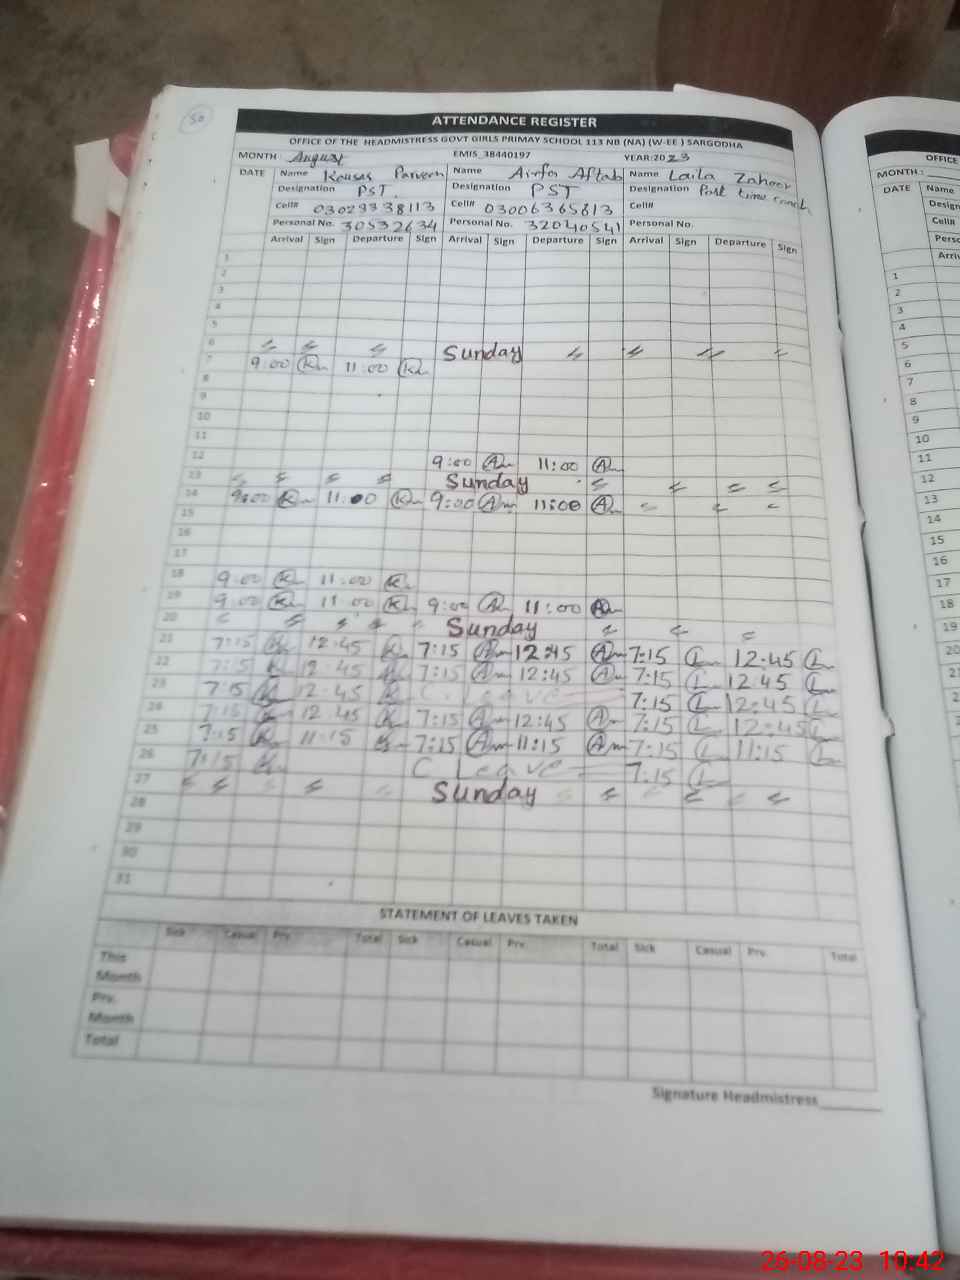 50
ATTENDANCE REGISTER
OFFICE OF THE HEADMISTRESS GOVT GIRLS PRIMAY SCHOOL 113 NB (NA) (W-EE ) SARGODHA
MONTH August EMIS_38440197 YEAR:2023
DATE Name Kousas Parveen Name Airfa Aftab Name Laila Zahoor
Designation PST. Designation PST Designation Part time
Cell# 03029338113 Cell# 03006365813 Cell#
Personal No. 30532634 Personal No. 32040541 Personal No.
Arrival Sign Departure Sign Arrival Sign Departure Sign Arrival Sign Departure Sign
1
2
3
4
5
6 Sunday
7 9:00 K 11:00 K
8
9
10
11
12 9:00 A 11:00 A
13 Sunday
14 9:00 K 11:00 K 9:00 A 11:00 A
15
16
17
18 9:00 K 11:00 K
19 9:00 K 11:00 K 9:00 A 11:00 A
20 Sunday
21 7:15 K 12:45 K 7:15 A 12:45 A 7:15 L 12:45 L
22 7:15 K 12:45 K 7:15 A 12:45 A 7:15 L 12:45 L
23 7:15 K 12:45 K C. Leave 7:15 L 12:45 L
24 7:15 K 12:45 K 7:15 A 12:45 A 7:15 L 12:45 L
25 7:15 K 11:15 K 7:15 A 11:15 A 7:15 L 11:15 L
26 7:15 K C Leave 7:15 L
27 Sunday
28
29
30
31
STATEMENT OF LEAVES TAKEN
Sick Casual Prv. Total Sick Casual Prv. Total Sick Casual Prv. Total
This
Month
Prv.
Month
Total
Signature Headmistress
OFFICE
MONTH :
DATE Name
Design
Cell#
Perso
Arriv
1
2
3
4
5
6
7
8
9
10
11
12
13
14
15
16
17
18
19
20
21
22
23
26-08-23 10:42